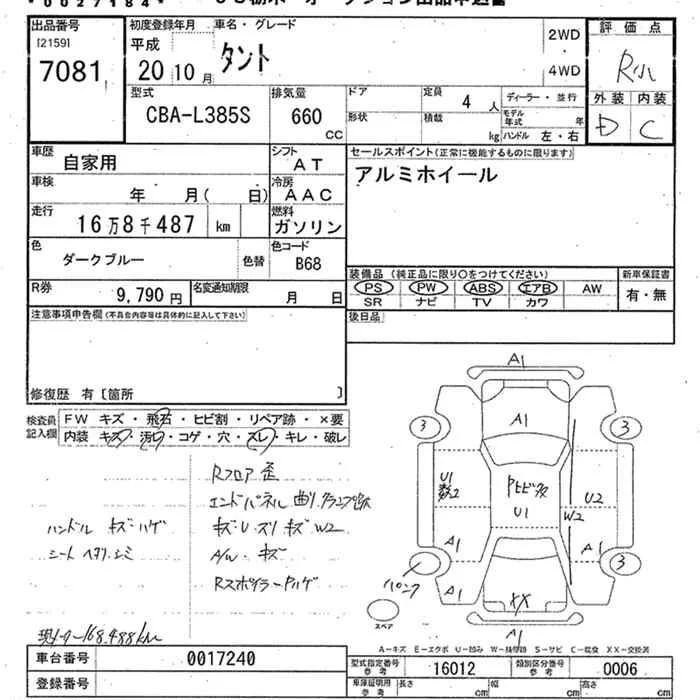 *0027184*
出品番号 初度登録年月 車名・グレード 評価点
[2159] 平成 2WD
7081 20 10月 タント 4WD R小
型式 排気量 ドア 定員 4人 ディーラー・並行 外装 内装
CBA-L385S 660 CC 形状 積載 kg モデル年式 年 D C
ハンドル 左・右
車歴 自家用 シフト AT セールスポイント(正常に機能するものに限ります)
車検 年 月( 日) 冷房 AAC アルミホイール
走行 16万8千487 km 燃料 ガソリン
色 ダークブルー 色替 色コード B68
装備品 (純正品に限り○をつけてください) 新車保証書
R券 9,790円 名変通知期限 月 日 PS PW ABS エアB AW 有・無
SR ナビ TV カワ
注意事項申告欄(不具合内容等は具体的に記入して下さい) 後日品
修復歴 有〔箇所 〕
検査員記入欄 FW キズ・飛石・ヒビ割・リペア跡・×要
内装 キズ・汚れ・コゲ・穴・スレ・キレ・破レ
Rフロア 歪
エンドパネル 曲り クランプ跡
ハンドル キズ・ハゲ キズ・U・ズリキズ W2
シート ヘタリ シミ A/W キズ
Rスポイラー ハゲ
現メーター168,488km
A1
3 A1 3
U1 数2 U1 U2
W2
A1 A1
3 A1 3
パンク
XX
スペア
A1
A-キズ E-エクボ U-凹み W-補修跡 S-サビ C-腐食 XX-交換済
車台番号 0017240 型式指定番号 参考 16012 類別区分番号 参考 0006
登録番号 車庫証明用 参考 長さ cm 幅 cm 高さ cm